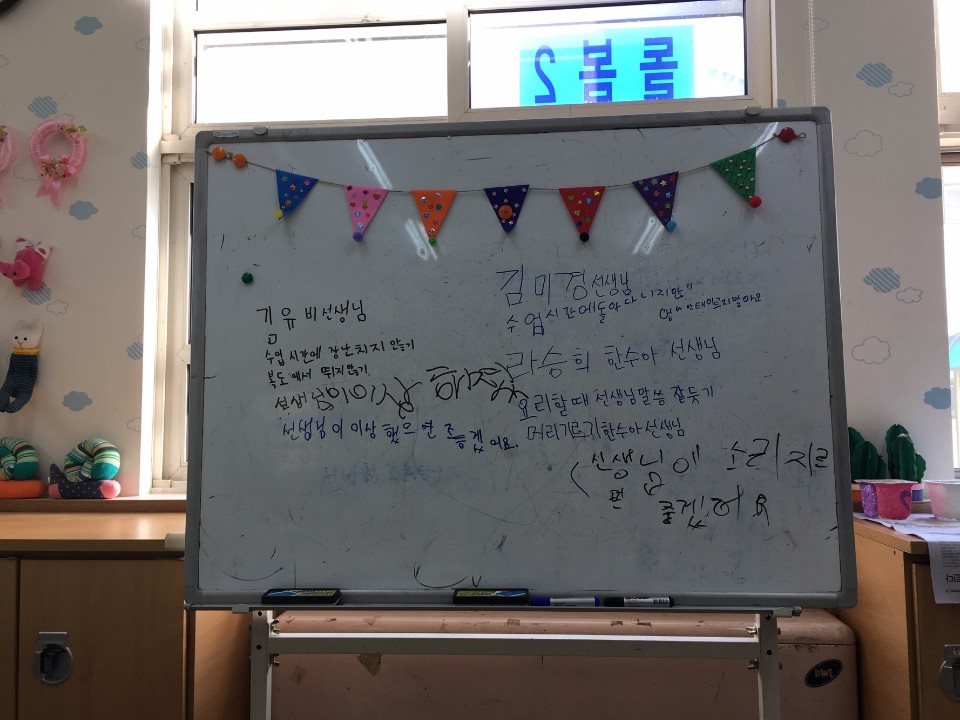 돌봄2
김미경선생님
수업시간에돌아다니지않기
기유비선생님
수업시간에 장난치지 않기
복도에서 뛰지않기
선생님이이상
선생님이 이상했으면 좋겠어요.
곽승희 한수아 선생님
요리할때선생님말씀 잘듣기
머리기르기한수아선생님
선생님에 소리지르
면 좋겠어요